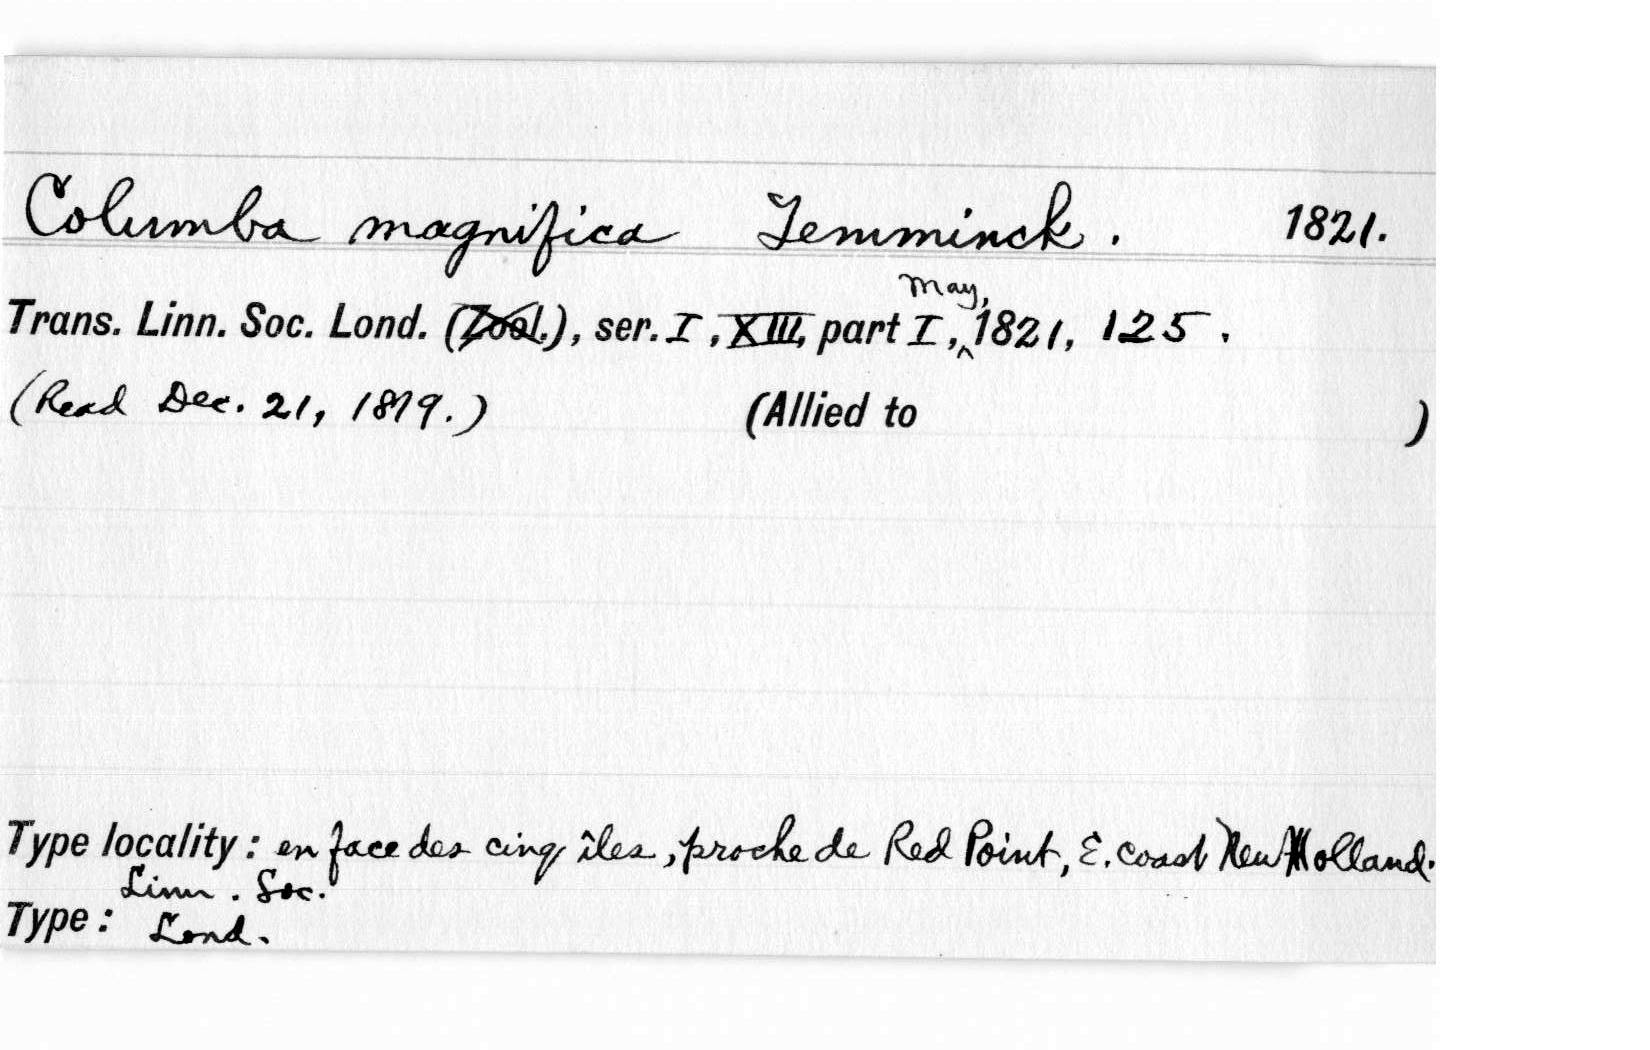 Columba magnifica Temminck. 1821.
May,
Trans. Linn. Soc. Lond. (Zool.), ser. I, XIII, part I, ^ 1821, 125.
(Read Dec. 21, 1819.) (Allied to )
Type locality: en face des cinq îles, proche de Red Point, E. coast New Holland.
Linn. Soc.
Type: Lond.